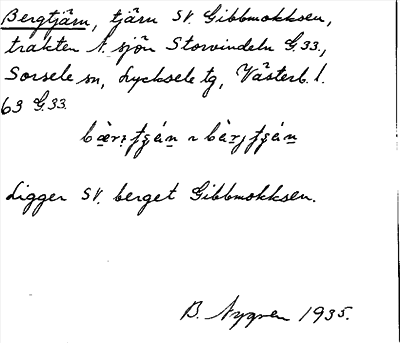 Bergtjärn, tjärn SV. Gibbmokksen,
trakten f. sjön Storvindeln G.33.,
Sorsele sn, Lycksele tg, Västerb. l.
63 G.33.
Ligger SV. berget Gibbmokksen.
B. Nygren 1935.